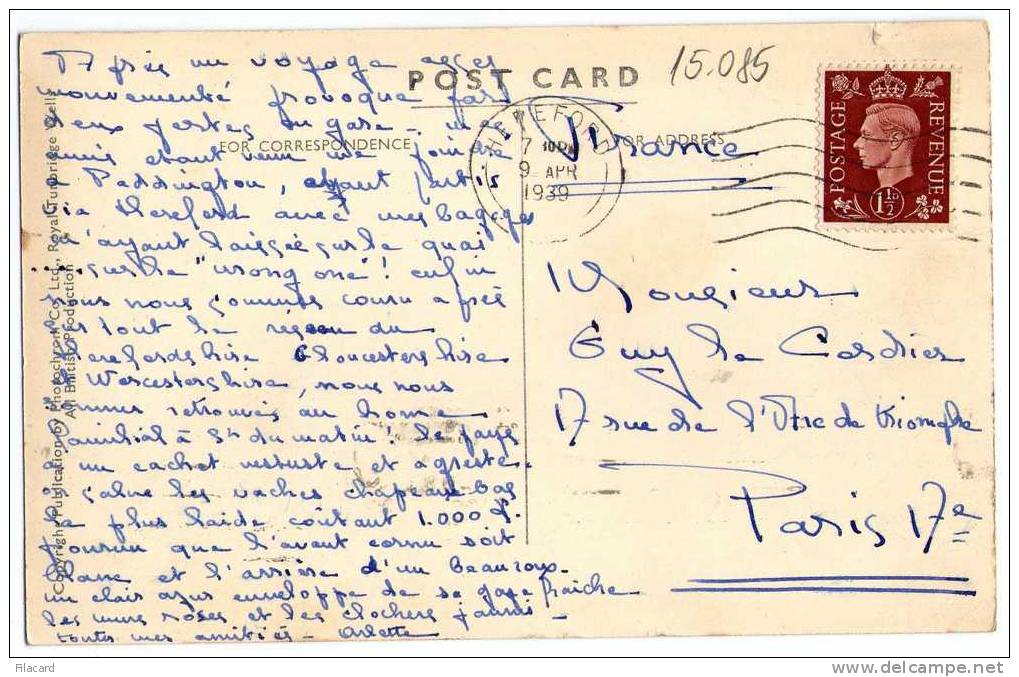 15.085
POST CARD
FOR CORRESPONDENCE
FOR ADDRESS
HEREFORD
7
9 APR
1939
POSTAGE
REVENUE
1½D
France
Monsieur
Guy Le
17 rue de l'Arc de Triomphe
Paris 17e
Après un voyage assez
mouvementé provoqué par
deux pertes en gare - mes
amis étant venu me joindre
à Paddington, étant partis
via Hereford avec mes bagages
m'ayant laissée sur le quai
sur le "wrong one"! enfin
nous nous sommes couru après
tout la région du
Herefordshire Gloucestershire
Worcestershire, nous nous
sommes retrouvés au home
familial à 5h du matin! Le pays
a un cachet vétuste et agreste.
salue les vaches chapeau bas
la plus laide coûtant 1.000 £.
pourvu que l'avant cornu soit
blanc et l'arrière d'un beau roux.
un clair azur enveloppe de sa gaze fraîche
les murs roses et les clochers jaunis -
toutes mes amitiés - Arlette
Copyright Publication by Photochrom Co. Ltd., Royal Tunbridge Wells
All British Production
filacard
www.delcampe.net